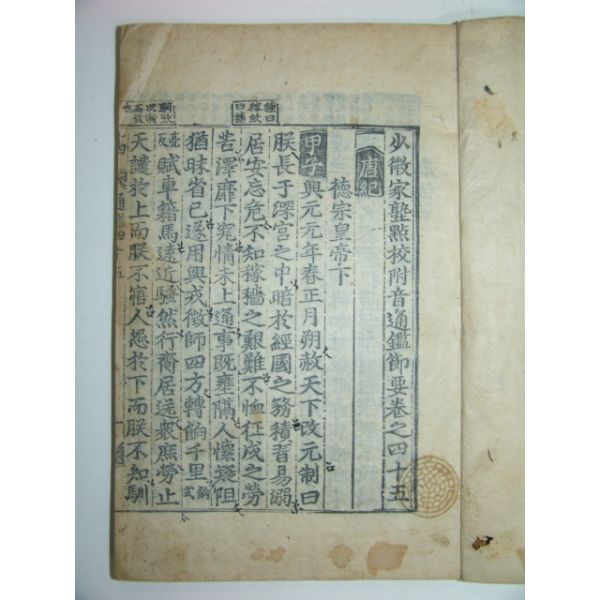 少微家塾點校附音通鑑節要卷之四十五
唐紀
德宗皇帝下
甲子興元元年春正月朔赦天下改元制曰
朕長于深宮之中暗於經國之務積習易溺
居安忘危不知稼穡之艱難不恤征戍之勞
苦澤靡下究情未上通事既壅隔人懷疑阻
猶昧省己遂用興戎徵師四方轉餉千里餉式亮反
賦車籍馬遠近騷然行齎居送衆庶勞止
天譴於上而朕不寤人怨於下而朕不知馴
種曰稼斂曰穡